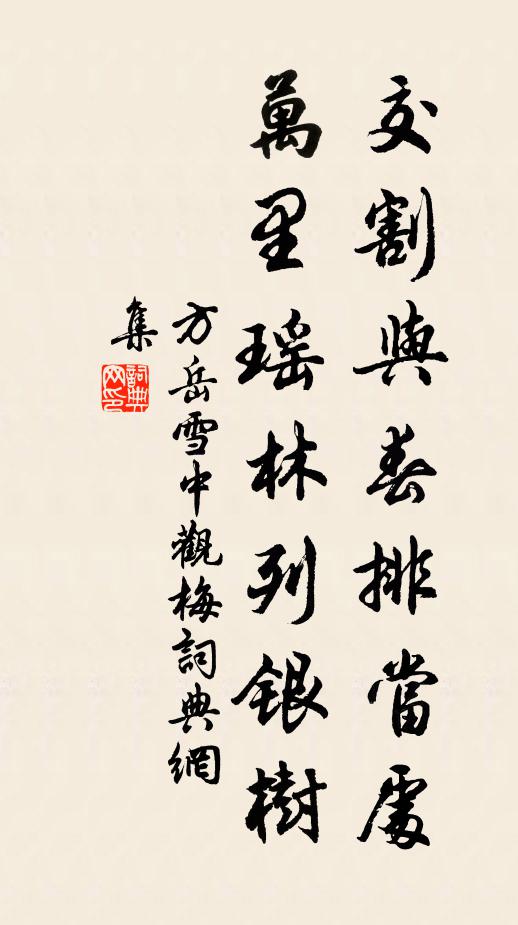 交割與春排當處
萬里瑶林列銀樹
方岳雪中觀梅詞典網
集
詞典
网印